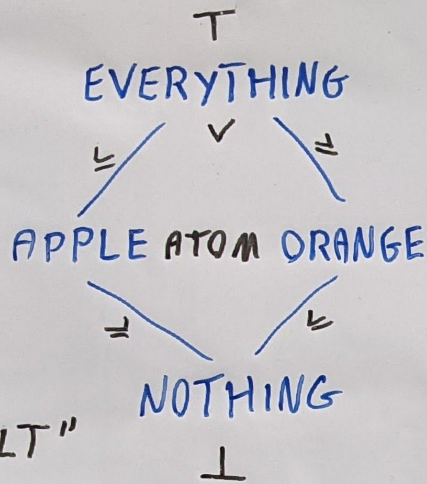 ⊤
EVERYTHING
∨
APPLE ATOM ORANGE
NOTHING
LT"
⊥